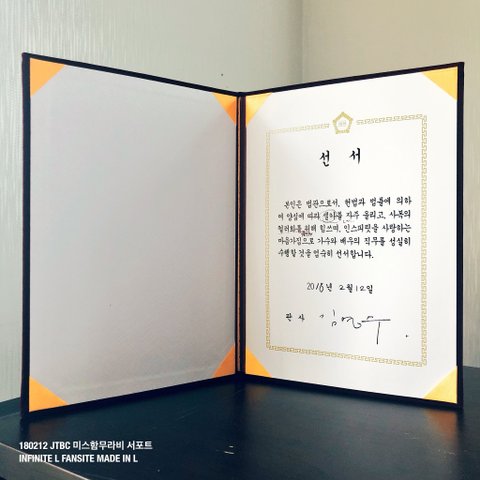 선 서
본인은 법관으로서, 헌법과 법률에 의하
여 양심에 따라 셀카를 자주 올리고, 사복의
컬러화를 위해 힘쓰며, 인스피릿을 사랑하는
마음가짐으로 가수와 배우의 직무를 성실히
수행할 것을 엄숙히 선서합니다.
2018년 2월 12일
판사 김명수
180212 JTBC 미스함무라비 서포트
INFINITE L FANSITE MADE IN L